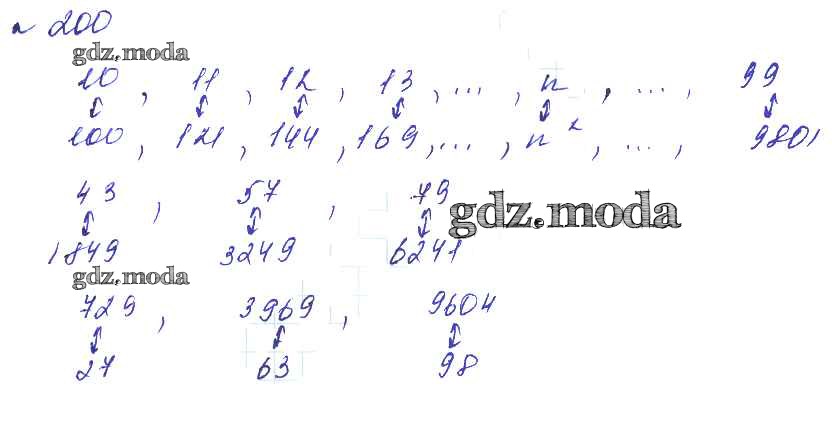 № 200
gdz.moda
10, 11, 12, 13, ..., n, ..., 99
↕ ↕ ↕ ↕ ↕ ↕
100, 121, 144, 169, ..., n², ..., 9801
43, 57, 79
↕ ↕ ↕
gdz.moda
1849 3249 6241
gdz.moda
729, 3969, 9604
↕ ↕ ↕
27 63 98